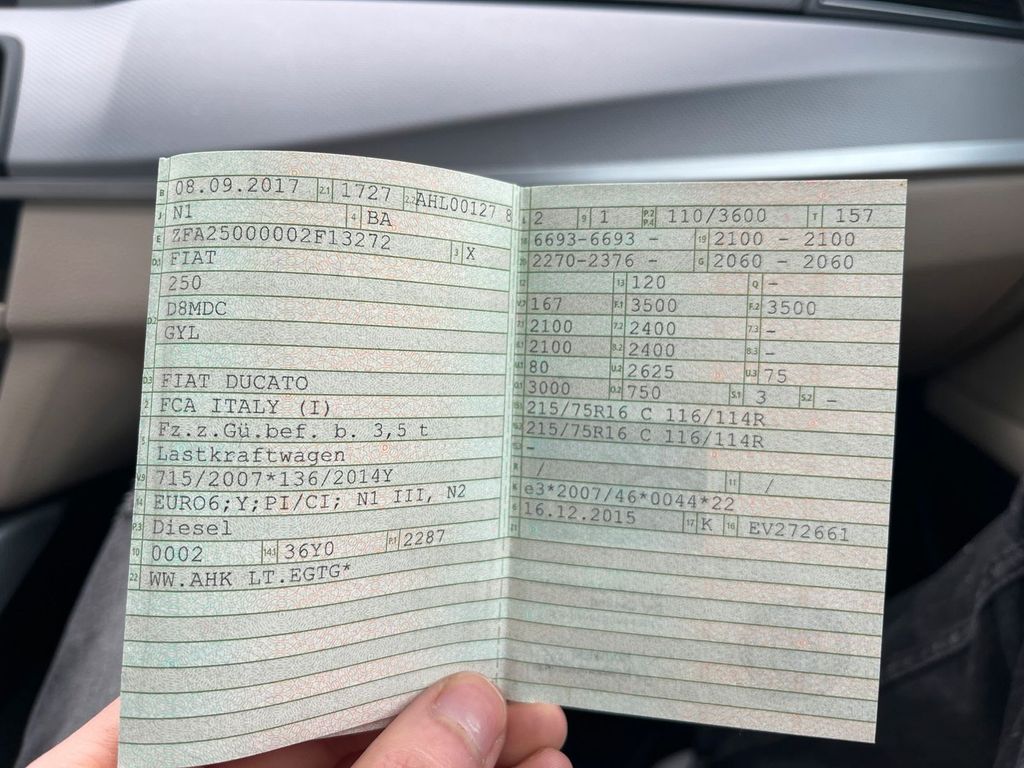 B 08.09.2017 2.1 1727 2.2 AHL00127 8
J N1 4 BA
E ZFA25000002F13272 3 X
D.1 FIAT
250
D.2 D8MDC
GYL
D.3 FIAT DUCATO
2 FCA ITALY (I)
5 Fz.z.Gü.bef. b. 3,5 t
Lastkraftwagen
V.9 715/2007*136/2014Y
14 EURO6;Y;PI/CI; N1 III, N2
P.3 Diesel
10 0002 14.1 36Y0 P.1 2287
22 WW.AHK LT.EGTG*
L 2 9 1 P.2 P.4 110/3600 T 157
18 6693-6693 - 19 2100 - 2100
20 2270-2376 - G 2060 - 2060
12 13 120 Q -
V.7 167 F.1 3500 F.2 3500
7.1 2100 7.2 2400 7.3 -
8.1 2100 8.2 2400 8.3 -
U.1 80 U.2 2625 U.3 75
O.1 3000 O.2 750 S.1 3 S.2 -
15.1 215/75R16 C 116/114R
15.2 215/75R16 C 116/114R
15.3 -
R / 11 /
K e3*2007/46*0044*22
6 16.12.2015 17 K 16 EV272661
21